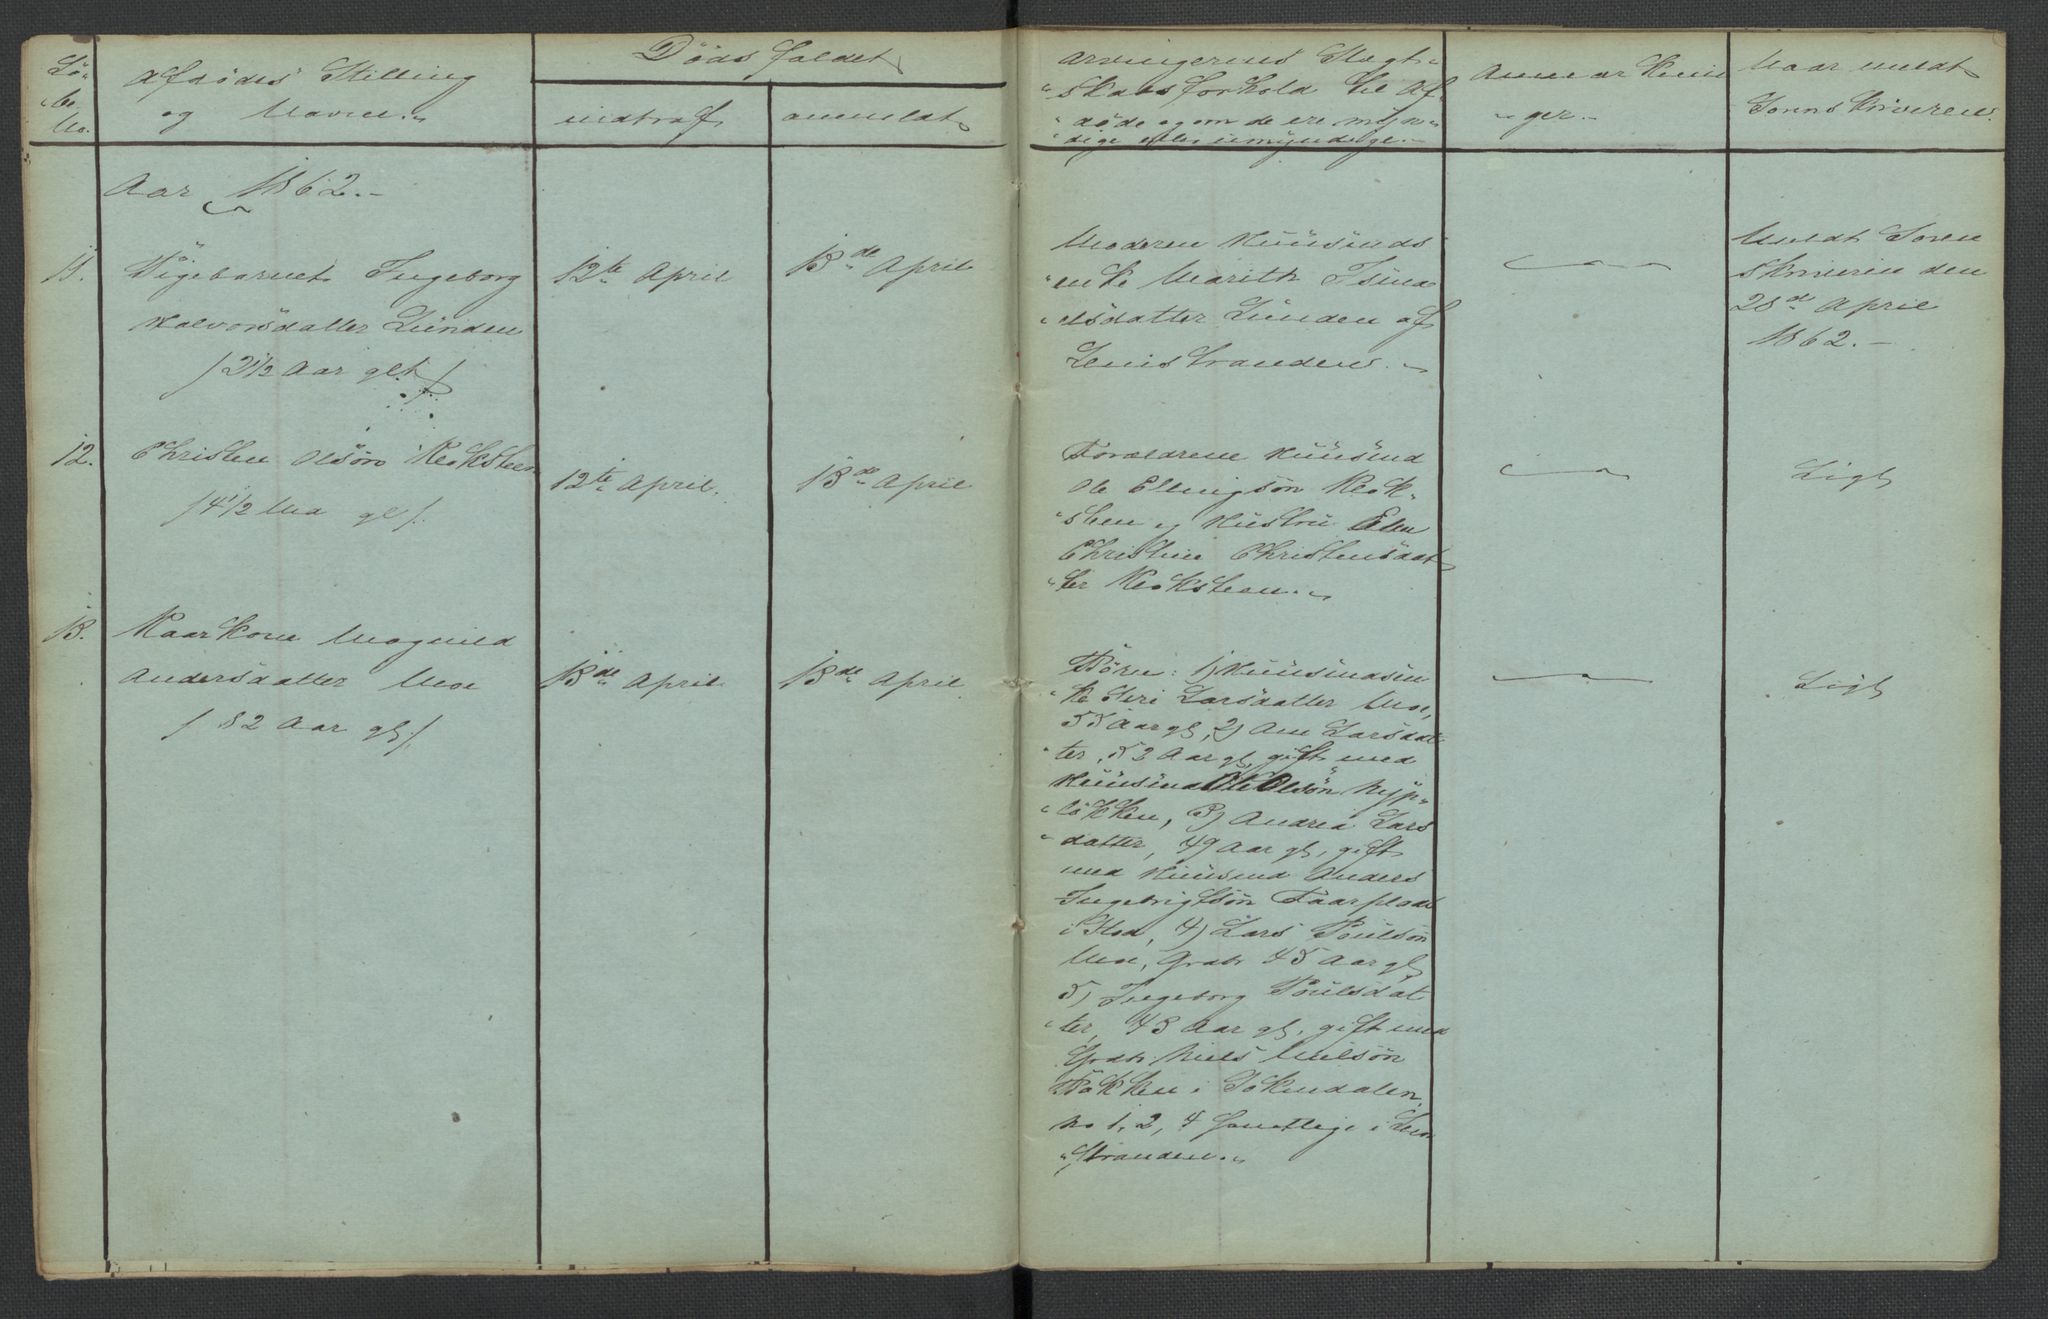 Lö-
be
No.
Afdödes Stilling
og Navn.
Dödsfaldet
indtraf
anmeldt
Arvingernes Slegt-
skabsforhold til Af-
döde og om de ere myn-
dige eller umyndige.
Anmærknin-
ger.
Naar meldt
Sorenskriveren.
Aar 1862.
11.
Pigebarnet Ingeborg
Halvorsdatter Lunden
/2½ Aar glt/
12te April
13de April
Moderen Huusinds-
enke Marith
Lunden af
Lensstranden.
Meldt Soren
skriveren den
28de April
1862.
12.
Christen Olsøn
/4½ Ma gl/.
12te April.
13de April
Forældrene Huusind
Ole Ellingsøn
steen og Hustru Elen
Christine Christensdat
ter
Ligt
13.
Kaarkone Magnild
Andersdatter Moe
/82 Aar gl/.
13de April
13de April
Börn: 1) Huusindsen
ke Siri Larsdatter Moe,
55 Aar gl, 2) Ane Larsdat
ter, 52 Aar gl, gift med
Huusind Ole Olsön Nyp-
lökken, 3) Andrea Lars
datter, 49 Aar gl, gift
med Huusind Anders
Ingebrigtsøn
i 4) Lars Poulsøn
Moe, Grdbr 45 Aar gl,
5) Ingeborg Poulsdat
ter, 43 Aar gl, gift med
Grdbr. Niels Nilsøn
Bakken i Soknedalen,
No 1, 2, 4 samtlige i Lens
stranden.
Ligt